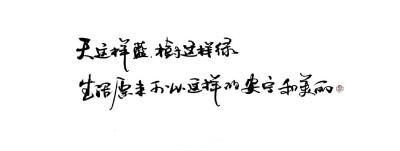 天这样蓝.树这样绿
生活原来可以这样的安宁和美丽